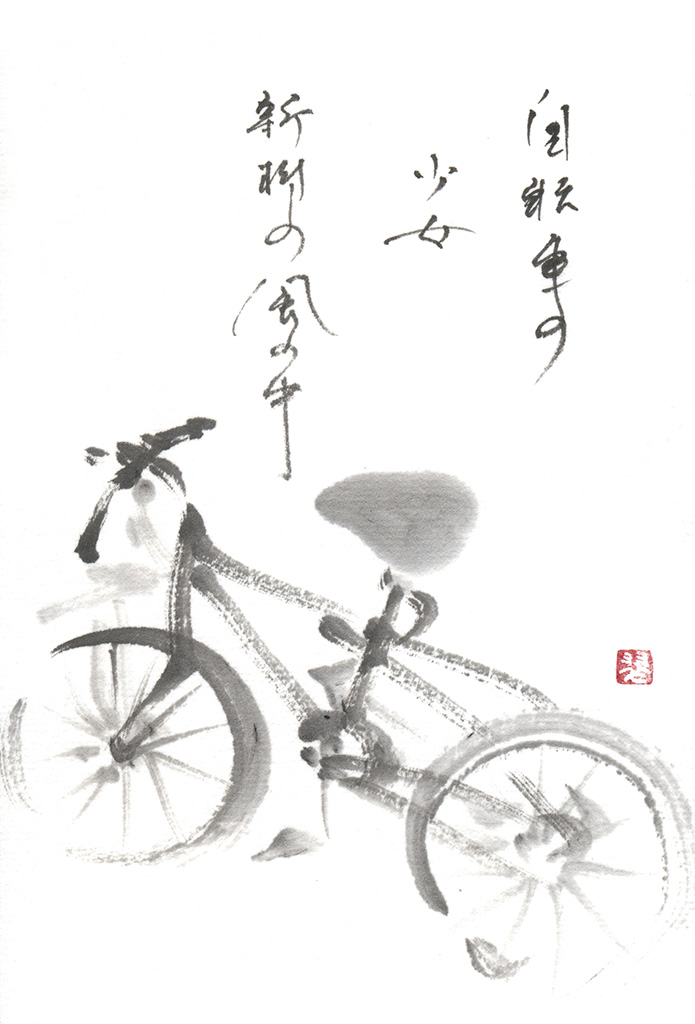 自転車の
少女
新樹の風の中